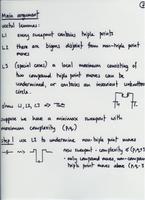 Main argument
useful lemmas:
L1 every sweepout contains triple points
L2 there are bigons disjoint from non-triple point
moves
L3 (special cases) a local maximum consisting of
two compound triple point moves can be
undermined, or contains an inessential unknotted
circle.
given L1, L2, L3 ⇒ Thm
suppose we have a minimax sweepout with
maximum complexity (p,q)
step 1 use L2 to undermine non-triple point moves
new sweepout - complexity ≤ (p,q)
- only compound moves, non-compound
triple point moves above